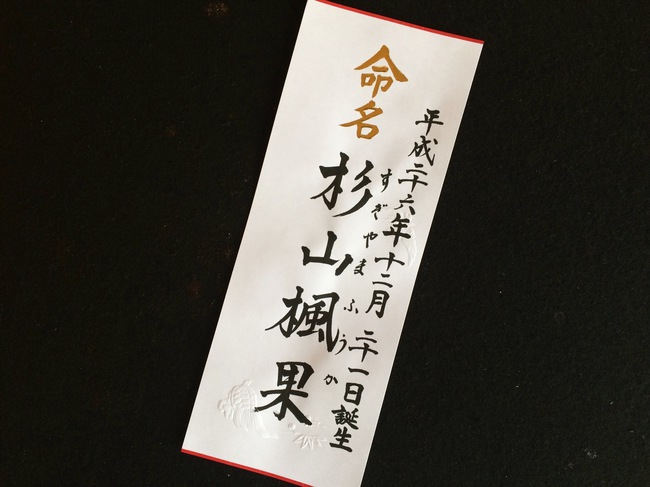 平成二十六年十二月二十一日誕生
命名
すぎやまふうか
杉山楓果